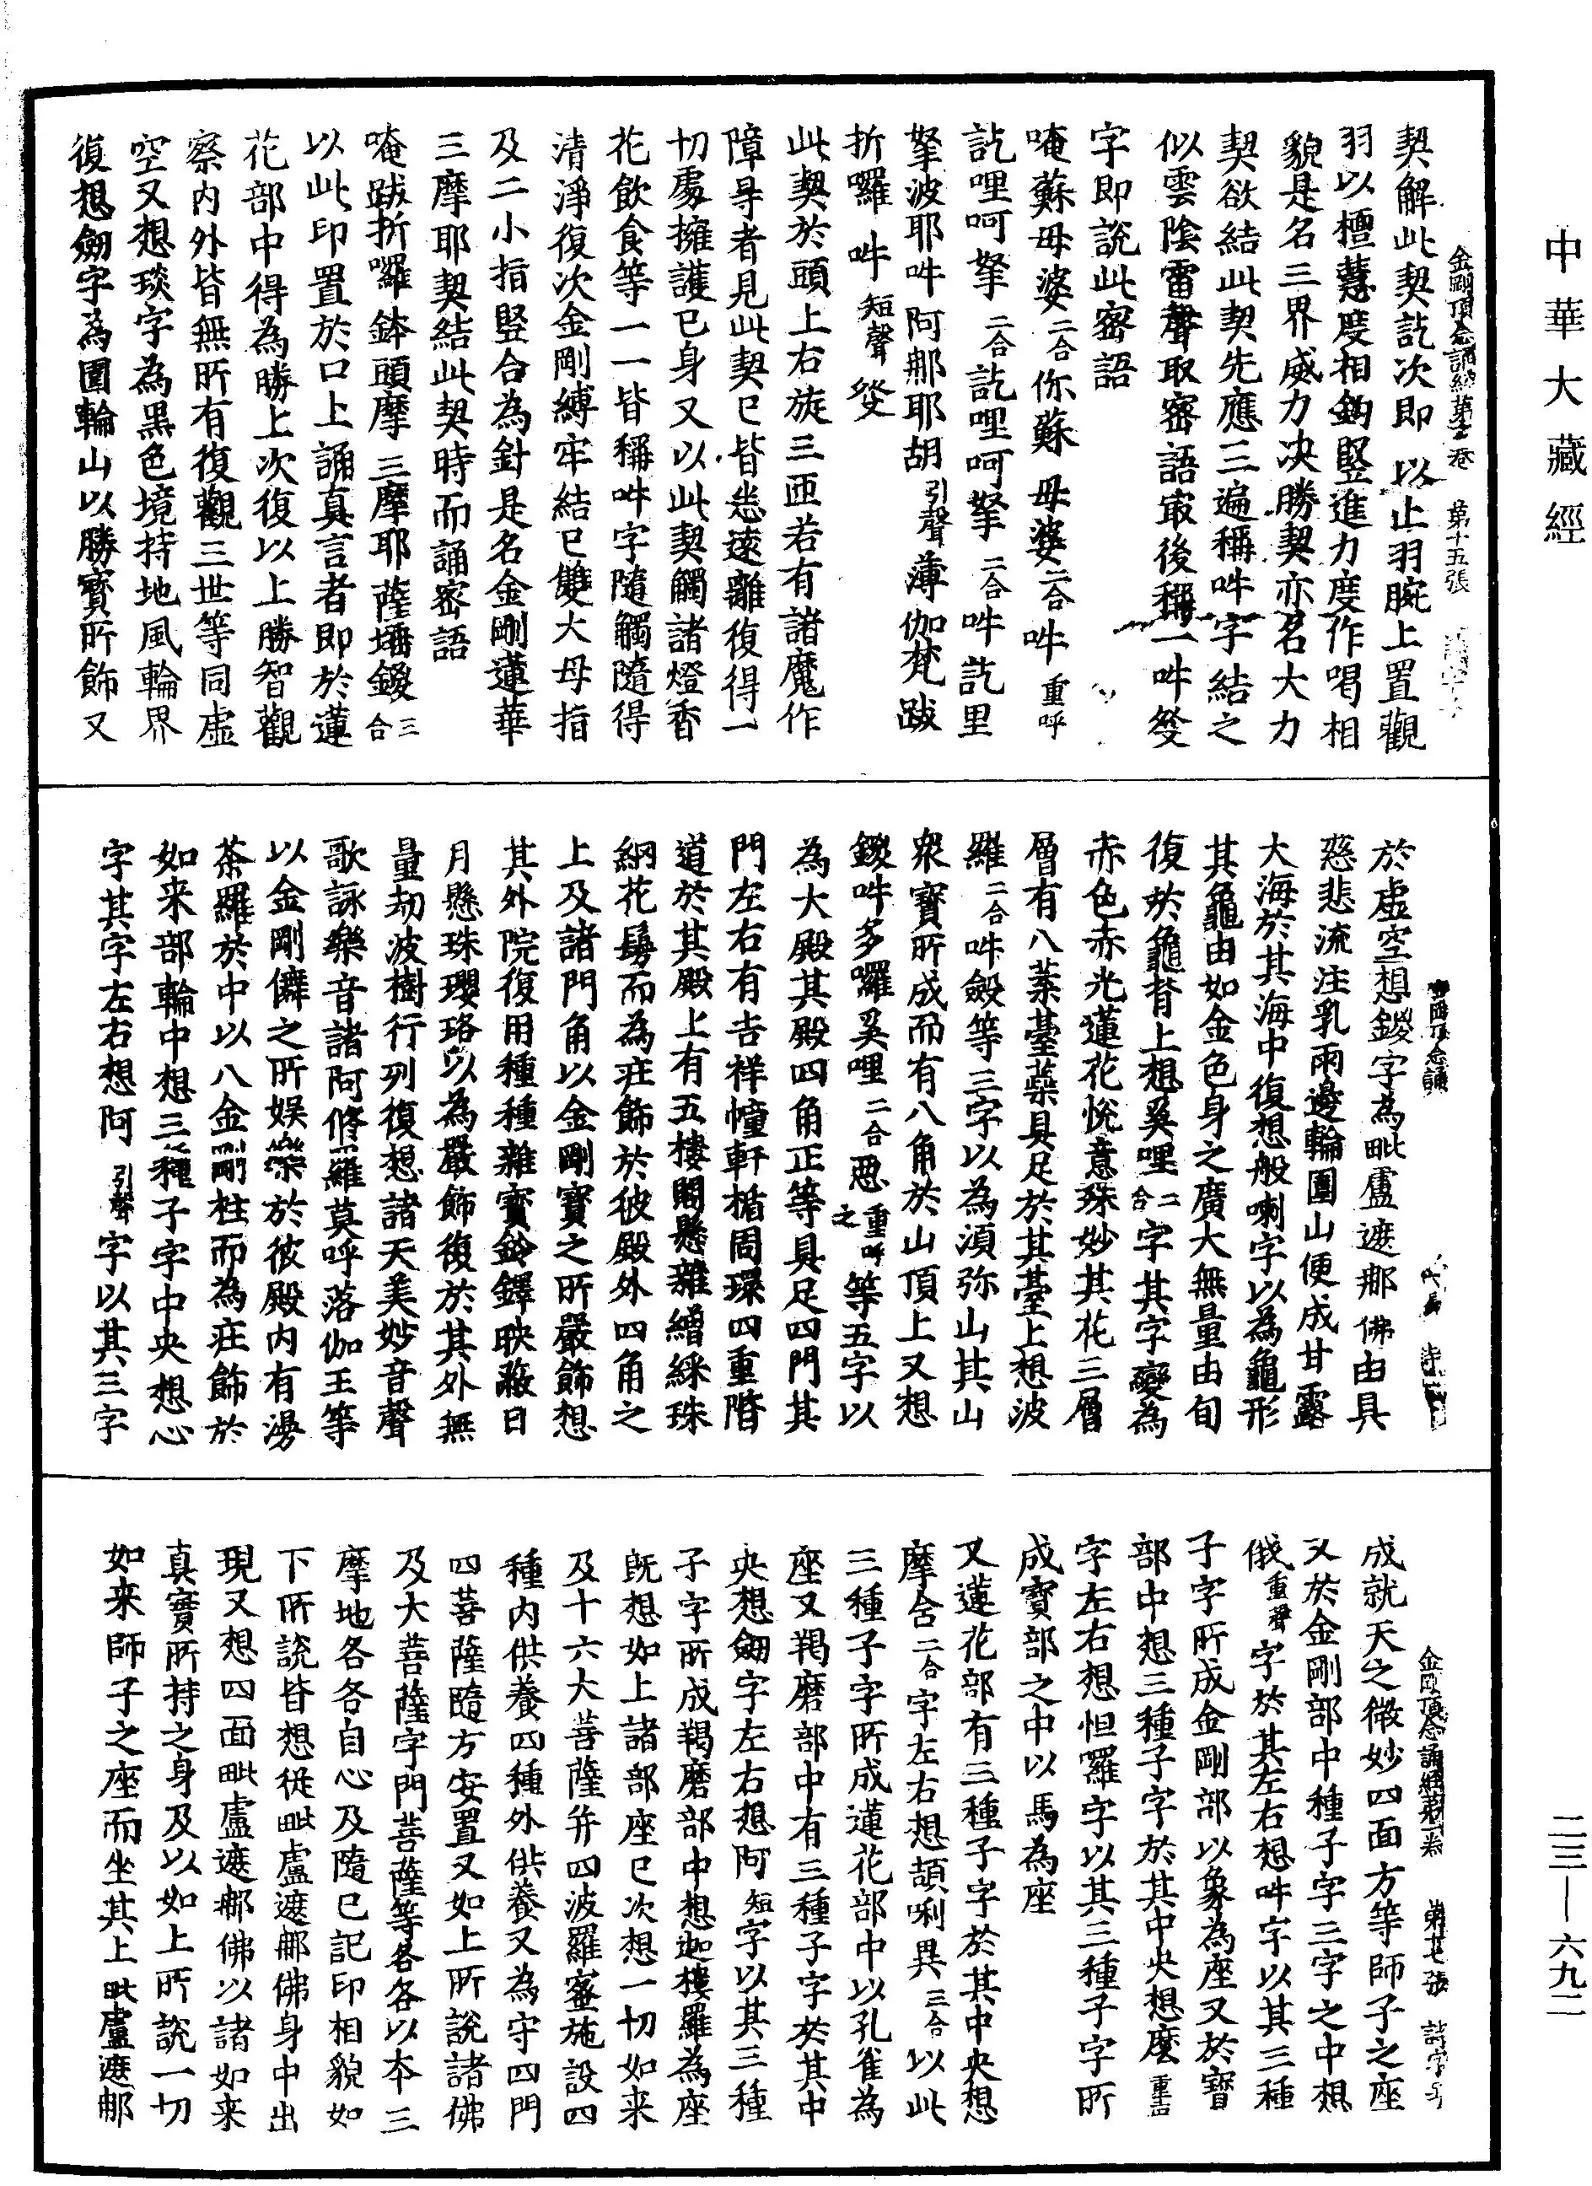 中華大藏經
金剛頂念誦經第 卷 第十五張
契解此契訖次即 以止羽腕上置觀
羽以檀慧度相鈎竪進力度作喝相
貌是名三界威力決勝契亦名大力
契欲結此契先應三遍稱吽字結之
似雲陰雷聲取密語最後稱一吽發
字即說此密語
唵蘇母婆二合你蘇 母婆二合吽 重呼
訖哩呵拏 二合訖哩呵拏 二合吽訖里
拏波耶吽 阿那耶胡 引聲 薄伽梵 跋
折囉 吽 短聲 發
此契於頭上右旋三匝若有諸魔作
障㝵者見此契已皆悉遠離復得一
切處擁護已身又以此契觸諸燈香
花飲食等一一皆稱吽字隨觸隨得
清淨復次金剛縛牢結已雙大母指
及二小指竪合為針是名金剛蓮華
三摩耶契結此契時而誦密語
唵跋折囉鉢頭摩 三摩耶薩埵鑁三合
以此印置於口上誦真言者即於蓮
花部中得為勝上次復以上勝智觀
察內外皆無所有復觀三世等同虛
空又想琰字為黑色境持地風輪界
復想劒字為圍輪山以勝寶所飾又
於虛空想鑁字為毗盧遮那 佛由具
慈悲流注乳雨邊輪圍山便成甘露
大海於其海中復想般喇字以為龜形
其龜由如金色身之廣大無量由旬
復於龜背上想奚哩二合字其字變為
赤色赤光蓮花悅意殊妙其花三層
層有八葉臺蘂具足於其臺上想波
羅 二合吽劒等三字以為須弥山其山
衆寶所成而有八角於山頂上又想
鑁吽多囉奚哩 二合惡 重呼之 等五字以
為大殿其殿四角正等具足四門其
門左右有吉祥幢軒楯周環四重階
道於其殿上有五樓閣懸雜繒綵珠
網花鬘而為莊飾於彼殿外四角之
上及諸門角以金剛寶之所嚴飾想
其外院復用種種雜寶鈴鐸映蔽日
月懸珠瓔珞以為嚴飾復於其外無
量劫波樹行列復想諸天美妙音聲
歌詠樂音諸阿修羅莫呼落伽王等
以金剛儛之所娛樂於彼殿內有湯
茶羅於中以八金剛柱而為莊飾於
如来部輪中想三種子字中央想心
字其字左右想阿 引聲 字以其三字
金剛頂念誦經第 卷 第 張
成就天之微妙四面方等師子之座
又於金剛部中種子字三字之中想
俄重聲 字於其左右想吽字以其三種
子字所成金剛部以象為座又於寶
部中想三種子字於其中央想麼 重吉
字左右想怛囉字以其三種子字所
成寶部之中以馬為座
又蓮花部有三種子字於其中央想
摩含二合字左右想頡唎異 三合 以此
三種子字所成蓮花部中以孔雀為
座又羯磨部中有三種子字於其中
央想劒字左右想阿 短字以其三種
子字所成羯磨部中想迦樓羅為座
既想如上諸部座已次想一切如来
及十六大菩薩并四波羅蜜施設四
種內供養四種外供養又為守四門
四菩薩隨方安置又如上所說諸佛
及大菩薩字門菩薩等各各以本三
摩地各各自心及隨已記印相貌如
下所說皆想從毗盧遮那佛身中出
現又想四面毗盧遮那佛以諸如来
真實所持之身及以如上所說一切
如来師子之座而坐其上毗盧遮那
二三—六九二